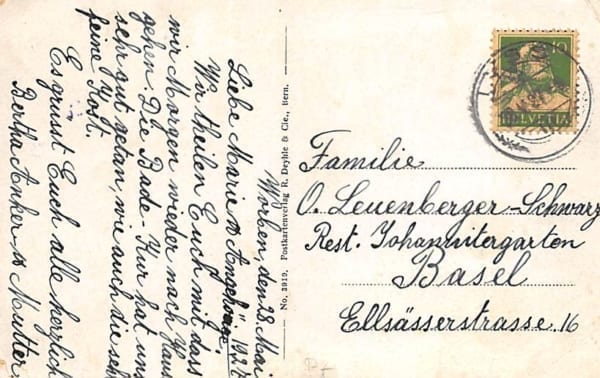 Worben, den 28. Mai 1927
Liebe Marie & Angehörige
Wir theilen Euch mit dass
wir Morgen wieder nach Haus
gehn. Die Bade-Kur hat uns
sehr gut getan, wie auch die sehr
feine Kost.
Es grüsst Euch alle herzlich
Bertha Anker & Mutter.
No. 3919. Postkartenverlag R. Deyhle & Cie., Bern.
10
HELVETIA
Familie
O. Leuenberger-Schwarz
Rest. Johannitergarten
Basel
Ellsässerstrasse 16